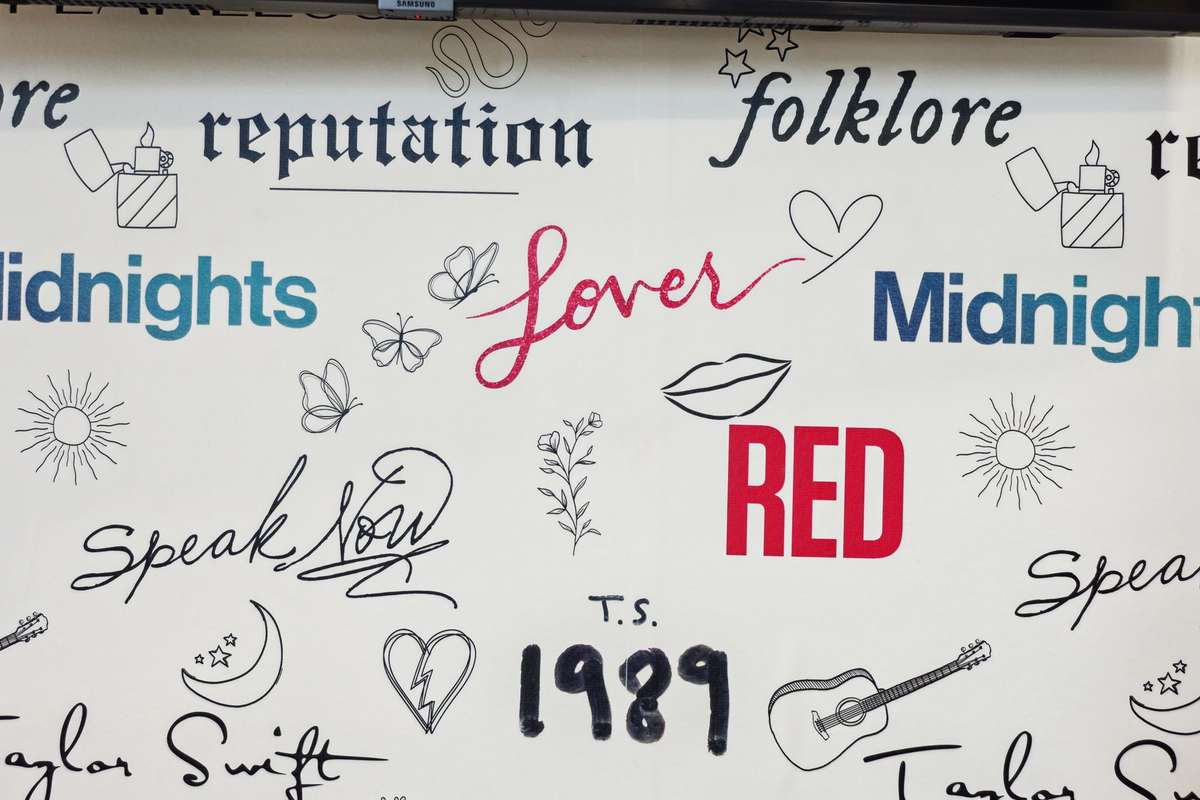 FEARLESS
SAMSUNG
reputation
folklore
Midnights
Lover
Midnight
RED
Speak Now
Spea
T.S.
1989
Taylor Swift
Taylor S